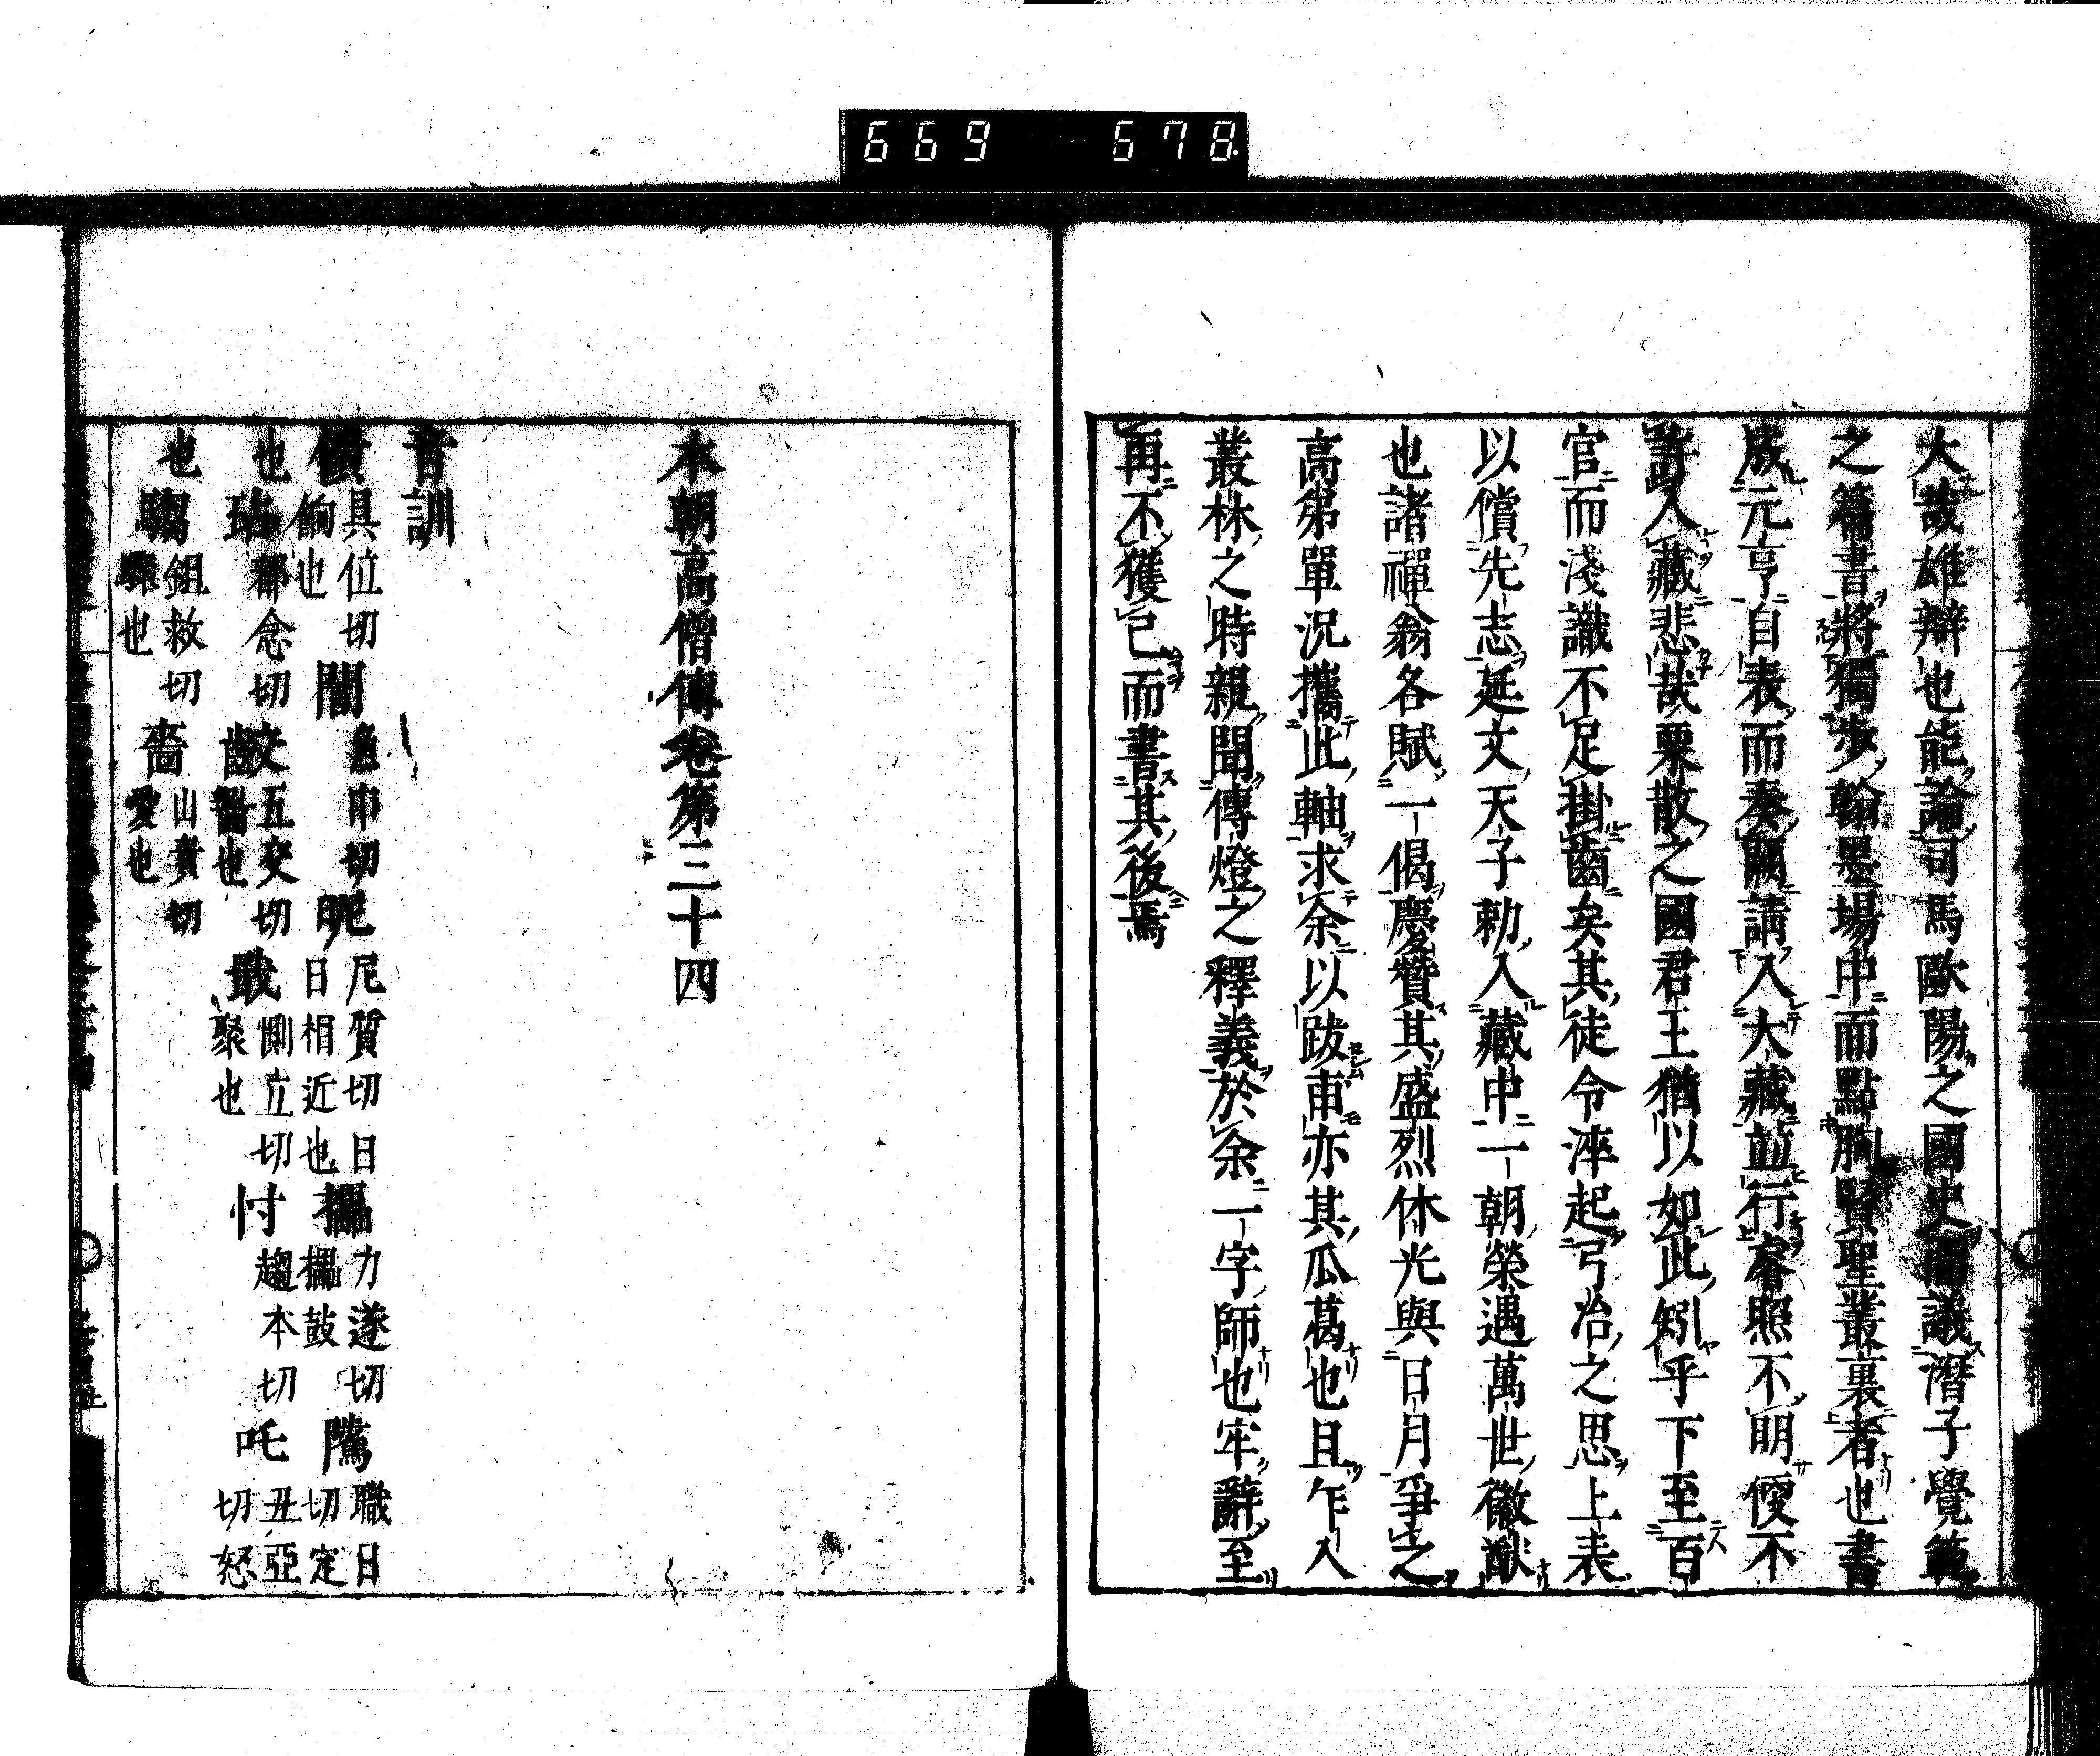 669 678.
大哉雄辯也能論司馬歐陽之國史而議潛子覺範
之篇書將獨步翰墨場中而點胸賢聖叢裏者也書
成元亨自表而奏闕請入大藏並行睿照不明僾不
許入藏悲哉粟散之國君王猶以如此矧乎下至百
官而淺識不足掛齒矣其徒令淬起弓冶之思上表
以償先志延文天子勅入藏中一朝榮遇萬世徽猷
也諸禪翁各賦一偈慶贊其盛烈休光與日月爭之
高弟單況攜此軸求余以跋焉亦其瓜葛也且乍入
叢林之時親聞傳燈之釋義於余一字師也牢辭至
再不獲已而書其後焉
本朝高僧傳卷第三十四
音訓
饋具位切餉也誾魚巾切昵尼質切日日相近也攂力遂切攂鼓騭職日切定
也玷都念切齩五交切齧也戢惻立切聚也忖趨本切吒丑亞切怒
也驟鉏救切驟也嗇山責切愛也